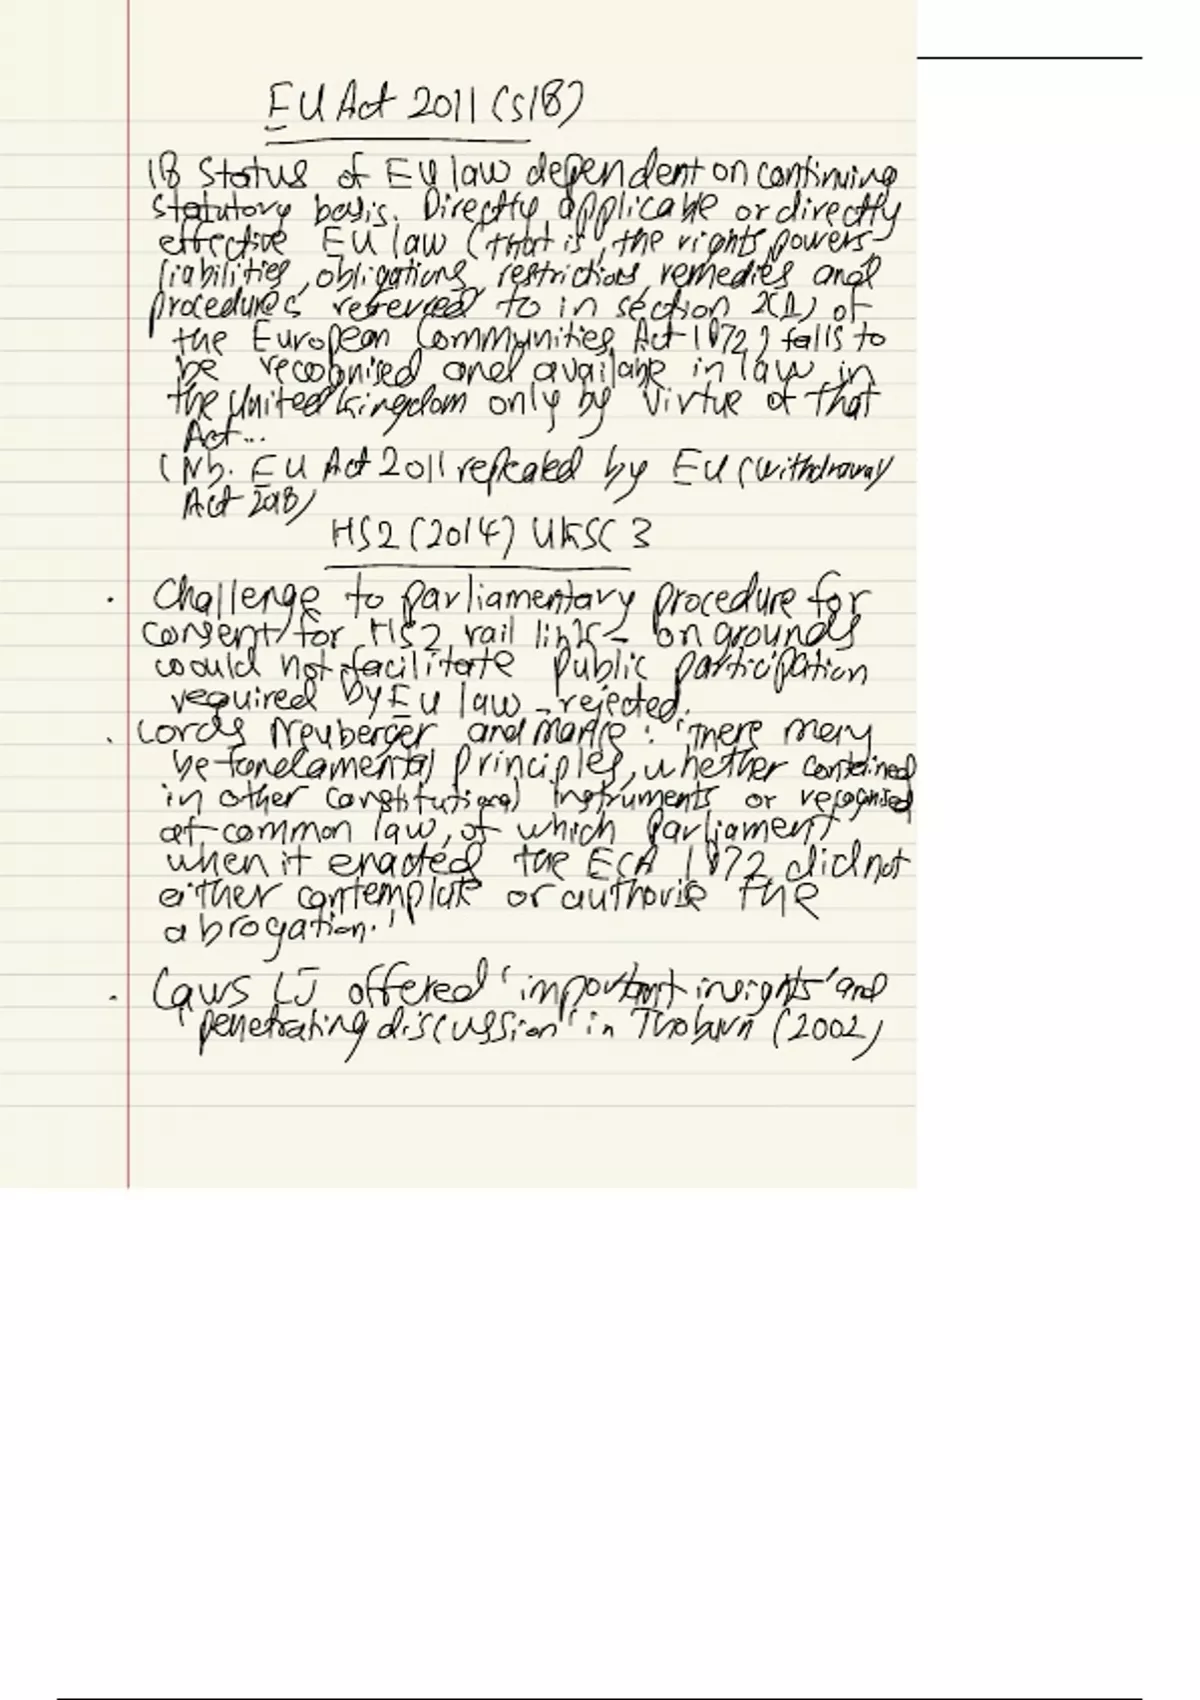 EU Act 2011 (S18)
18 Status of EU law dependent on continuing
statutory basis. Directly applicable or directly
effective EU law (that is, the rights, powers,
liabilities, obligations, restrictions, remedies and
procedures referred to in section 2(1) of
the European Communities Act 1972) falls to
be recognised and available in law in
the United Kingdom only by virtue of that
Act...
(Nb. EU Act 2011 repealed by EU (withdrawal)
Act 2018)
HS2 (2014) UKSC 3
· Challenge to parliamentary procedure for
consent for HS2 rail link - on grounds
would not facilitate public participation
required by EU law - rejected.
· Lords Neuberger and Mance: 'There may
be fundamental principles, whether contained
in other constitutional instruments or recognised
at common law, of which Parliament
when it enacted the ECA 1972 did not
either contemplate or authorise the
abrogation.'
· Laws LJ offered 'important insights' and
'penetrating discussion' in Thoburn (2002)